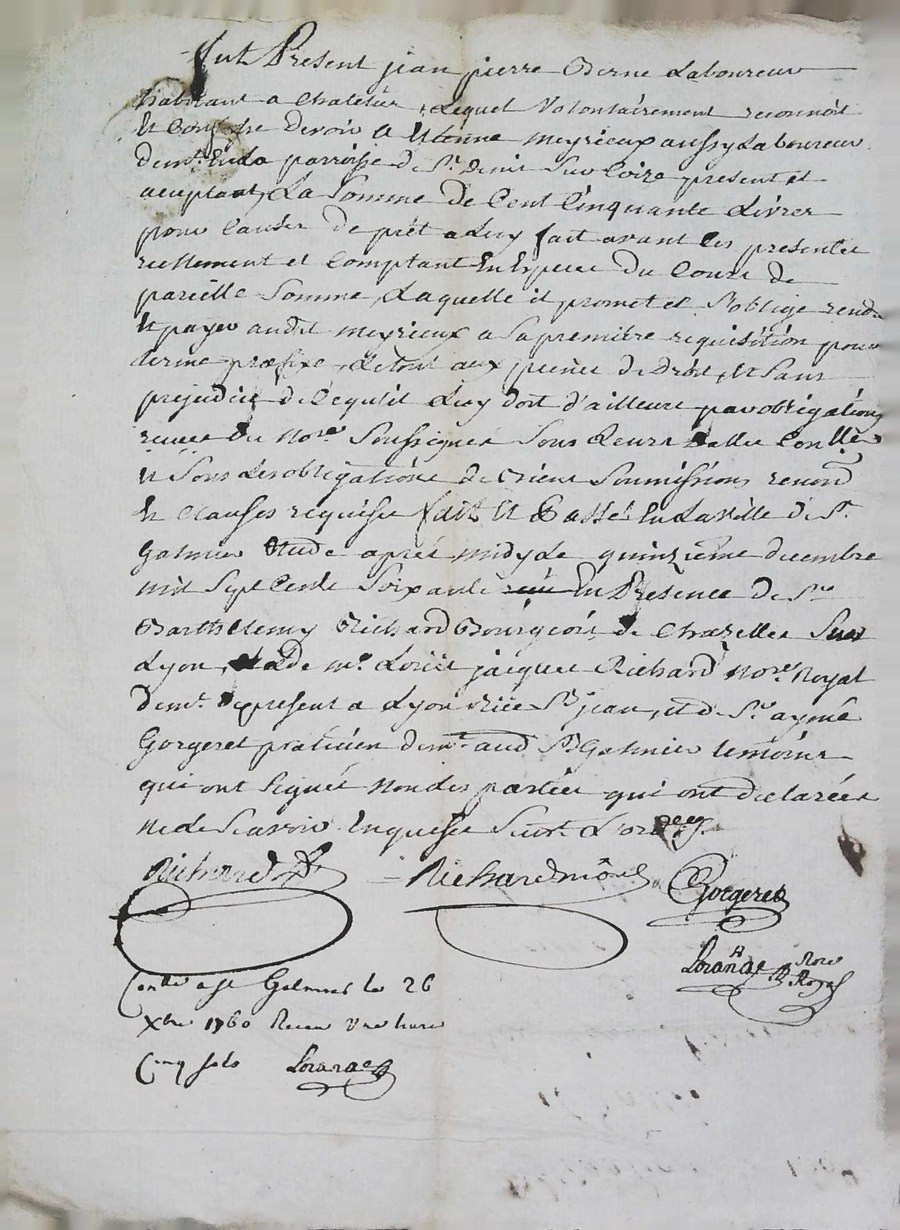 fut Présent jean pierre Berne Laboureur
habitant a Chatelus, Lequel Volontairement reconnoit
Et Confesse devoir a Etienne meyrieux aussy Laboureur
demt. En La parroisse de St. Denis Sur Coize present et
acceptant, La Somme de Cent Cinquante Livres
pour Causes de prêt a Luy fait avant les presentes
reellement et Comptant En Especes du Cours de
pareille Somme, Laquelle il promet et S'oblige rendre
Et payer audit meyrieux a Sa premiere requisition pour
terme prefixe, Le tout aux peines de Droit, Et Sans
prejudice de Ce qu'il Luy doit d'ailleurs par obligation
recues du Nore. Soussigné Sous Leurs
Et Sous Les obligations de Soumissions renond
Et Clauses requises fait Et Passé En La Ville de St.
Galmier Etude aprés midy Le quinzieme decembre
mil Sept Cents Soixante En Presence de Sr.
Barthelemy Richard Bourgeois de Chazelles Sur
Lyon, de me. Loüis jacques Richard Nore. Royal
demt. a present a Lyon Rüe St. jean, et de Sr. aymé
Gorgeret praticien demt. aud St. Galmier temoins
qui ont Signés Non des parties qui ont declarées
Ne le Scavoir Enquises Suivt. L'ordce.
Richard Richard Gorgeret
Lorange Nore Royal
Conllé a St Galmier le 26
Xbre 1760 Receu Une livre
Cinq sols Loranges